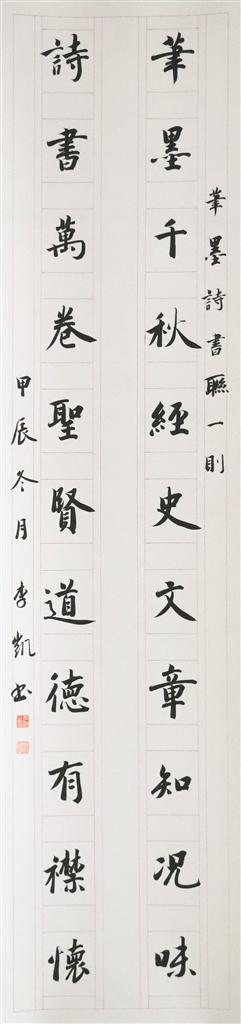 筆墨詩書聯一則
筆墨千秋經史文章知況味
詩書萬卷聖賢道德有襟懷
甲辰冬月 李凱书